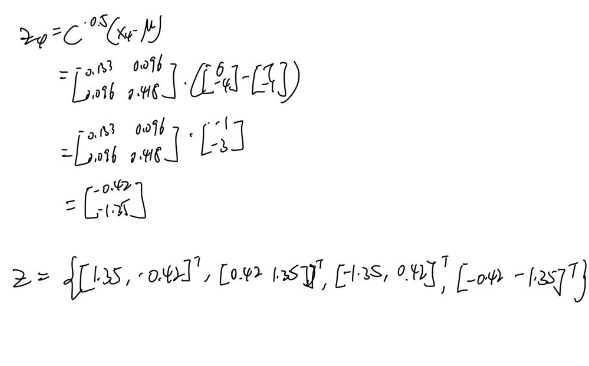 z₄ = C^-0.5 (x₄ - μ)
= [0.133 0.096; 0.096 0.418] · ([6; -4] - [7; -1])
= [0.133 0.096; 0.096 0.418] · [-1; -3]
= [-0.42; -1.35]
Z = {[1.35, -0.42]ᵀ, [0.42 1.35]ᵀ, [-1.35, 0.42]ᵀ, [-0.42 -1.35]ᵀ}